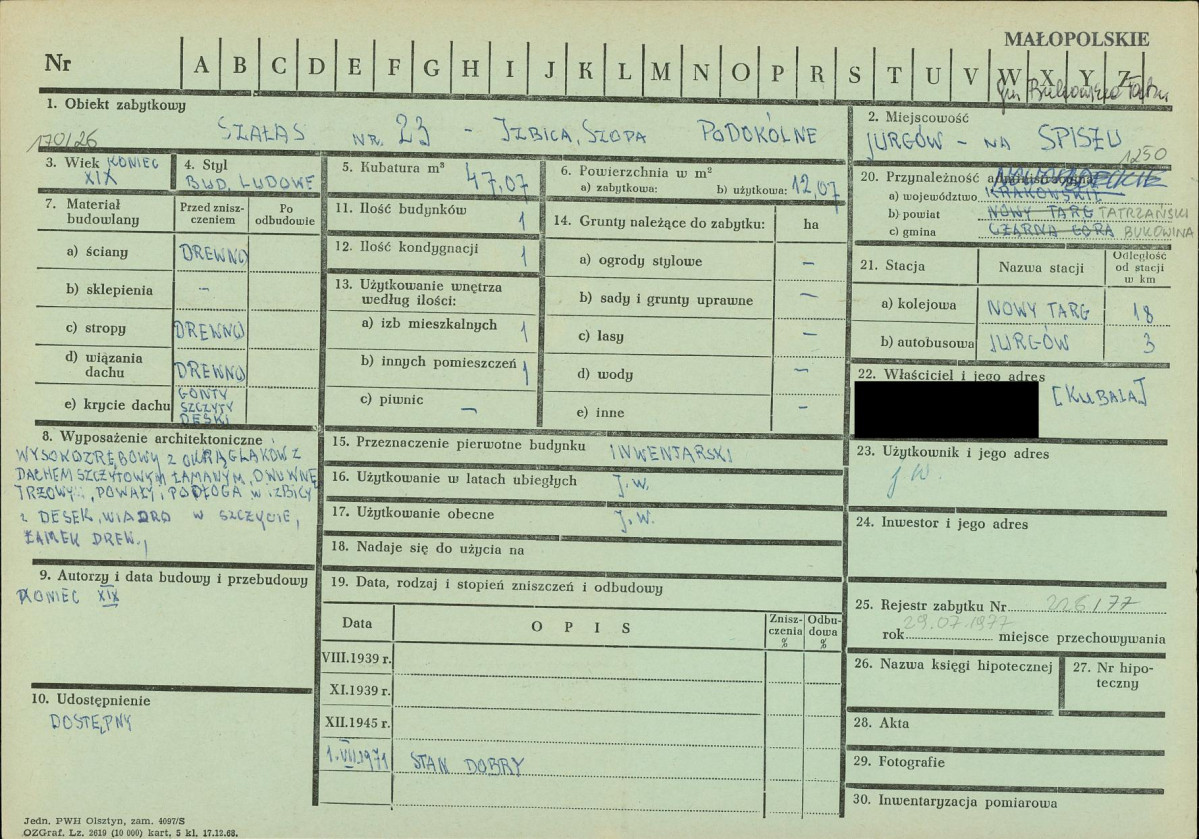 MAŁOPOLSKIE
Nr A B C D E F G H I J K L M N O P R S T U V W X Y Z
gm. Bukowina Tatrz.
1. Obiekt zabytkowy
170/26
SZAŁAS NR. 23 – IZBICA, SZOPA PODOKÓLNE
2. Miejscowość
JURGÓW – NA SPISZU
1250
3. Wiek KONIEC
XIX
4. Styl
BUD. LUDOWE
5. Kubatura m³ 47,07
6. Powierzchnia w m²
a) zabytkowa: b) użytkowa: 12,07
20. Przynależność administracyjna
NOWOSĄDECKIE
a) województwo KRAKOWSKIE
b) powiat NOWY TARG TATRZAŃSKI
c) gmina CZARNA GÓRA BUKOWINA
7. Materiał budowlany
Przed zniszczeniem
Po odbudowie
a) ściany DREWNO
b) sklepienia –
c) stropy DREWNO
d) wiązania dachu DREWNO
e) krycie dachu GONTY
SZCZYTY
DESKI
11. Ilość budynków 1
12. Ilość kondygnacji 1
13. Użytkowanie wnętrza
według ilości:
a) izb mieszkalnych 1
b) innych pomieszczeń 1
c) piwnic –
14. Grunty należące do zabytku: ha
a) ogrody stylowe –
b) sady i grunty uprawne –
c) lasy –
d) wody –
e) inne –
21. Stacja Nazwa stacji Odległość od stacji w km
a) kolejowa NOWY TARG 18
b) autobusowa JURGÓW 3
22. Właściciel i jego adres
[KUBALA]
8. Wyposażenie architektoniczne
WYSOKOZRĘBOWY Z OKRĄGLAKÓW Z
DACHEM SZCZYTOWYM ŁAMANYM, DWUWNĘ
TRZOWY, POWAŁY I PODŁOGA W IZBICY
Z DESEK, WIADRO W SZCZYCIE,
ZAMEK DREW.,
15. Przeznaczenie pierwotne budynku INWENTARSKI
16. Użytkowanie w latach ubiegłych J.W.
17. Użytkowanie obecne J.W.
18. Nadaje się do użycia na
23. Użytkownik i jego adres
J.W.
24. Inwestor i jego adres
9. Autorzy i data budowy i przebudowy
KONIEC XIX
19. Data, rodzaj i stopień zniszczeń i odbudowy
Data OPIS Zniszczenia % Odbudowa %
VIII.1939 r.
XI.1939 r.
XII.1945 r.
1.VII.1971 STAN DOBRY
25. Rejestr zabytku Nr /77
29.07.1977
rok miejsce przechowywania
26. Nazwa księgi hipotecznej
27. Nr hipoteczny
10. Udostępnienie
DOSTĘPNY
28. Akta
29. Fotografie
30. Inwentaryzacja pomiarowa
Jedn. PWH Olsztyn, zam. 4097/S
OZGraf. Lz. 2619 (10 000) kart. 5 kl. 17.12.68.